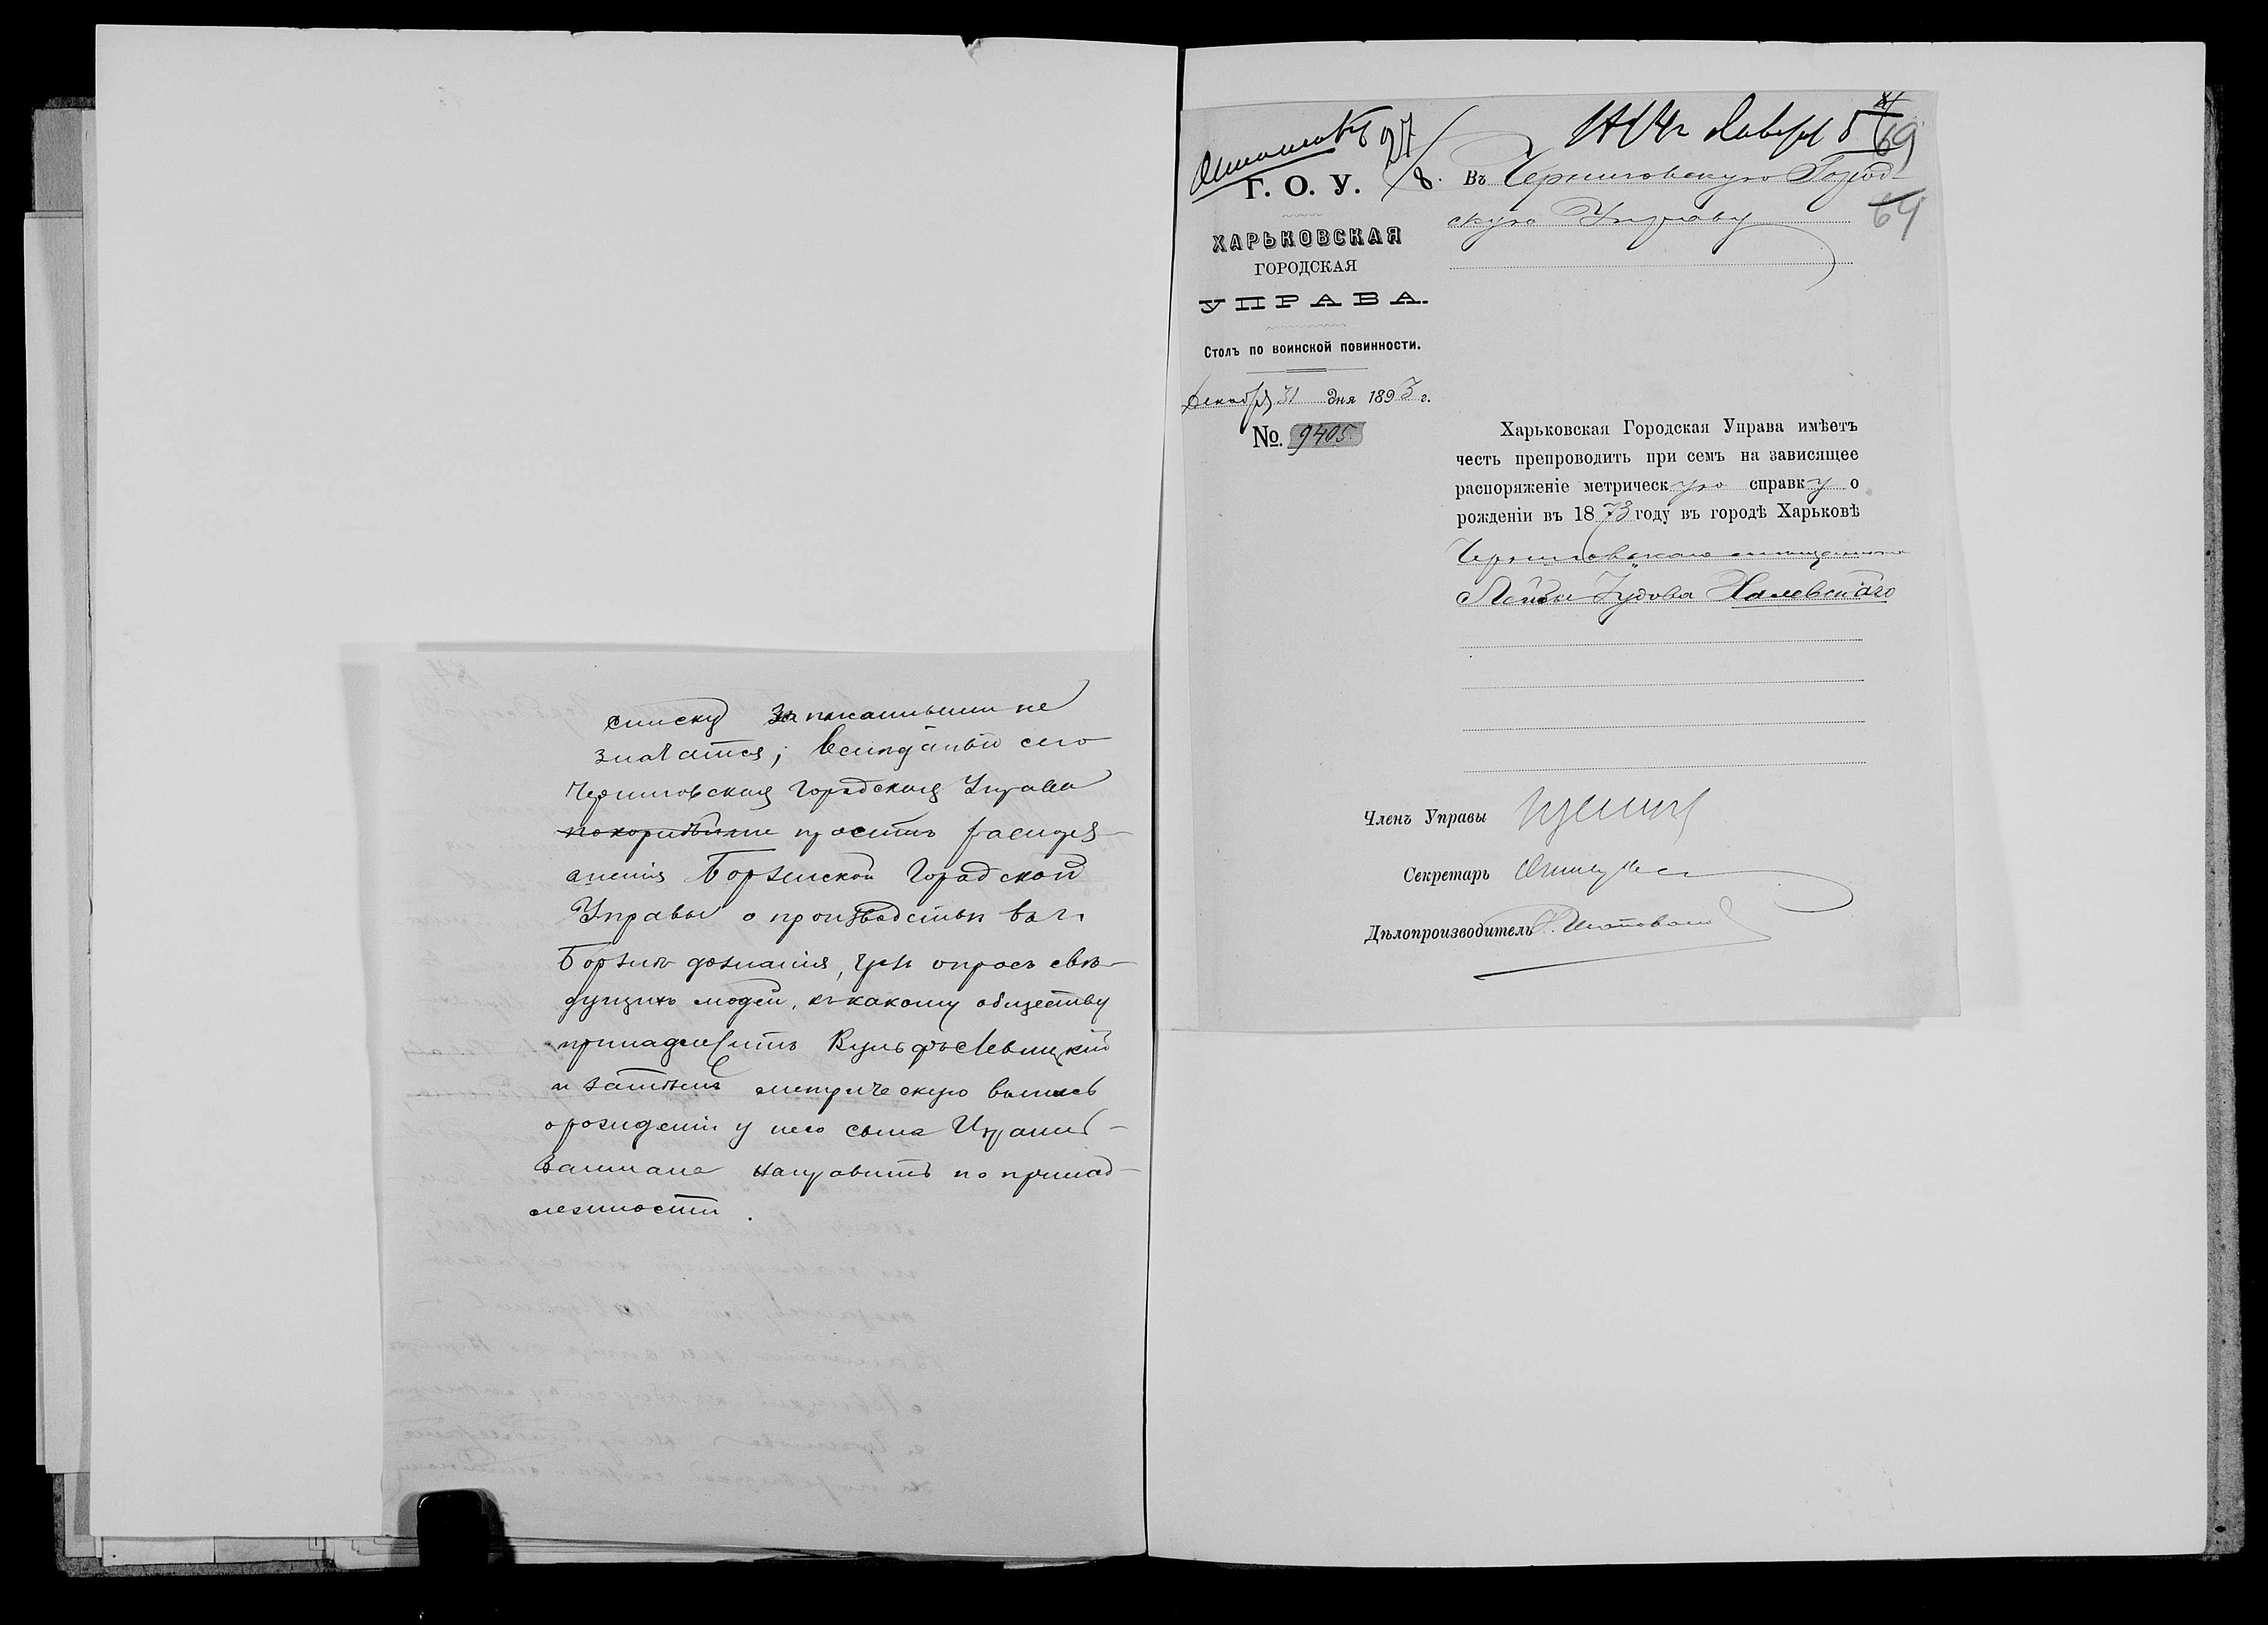 списку записаннымъ не
значатся; вслѣдствіе сего
Черниговская Городская Управа
покорнѣйше проситъ распоря-
женія Борзенской Городской
Управы о производствѣ въ г.
Борзнѣ дознанія, чрезъ опросъ свѣ-
дущихъ людей, къ какому обществу
принадлежитъ Вульфъ Левицкій
и затѣмъ метрическую выпись
о рожденіи у него сына Израиль-
Залмана направить по принад-
лежности.
69
64
27
Г. О. У.
8.
Въ Черниговскую Город-
скую Управу
ХАРЬКОВСКАЯ
ГОРОДСКАЯ
УПРАВА.
Столъ по воинской повинности.
Декабря 31 дня 1893 г.
№. 9405
Харьковская Городская Управа имѣетъ
честь препроводить при семъ на зависящее
распоряженіе метрическую справку о
рожденіи въ 1873 году въ городѣ Харьковѣ
Черниговскаго мѣщанина
Лейбы Іудова Халевскаго
Членъ Управы
Секретарь
Дѣлопроизводитель